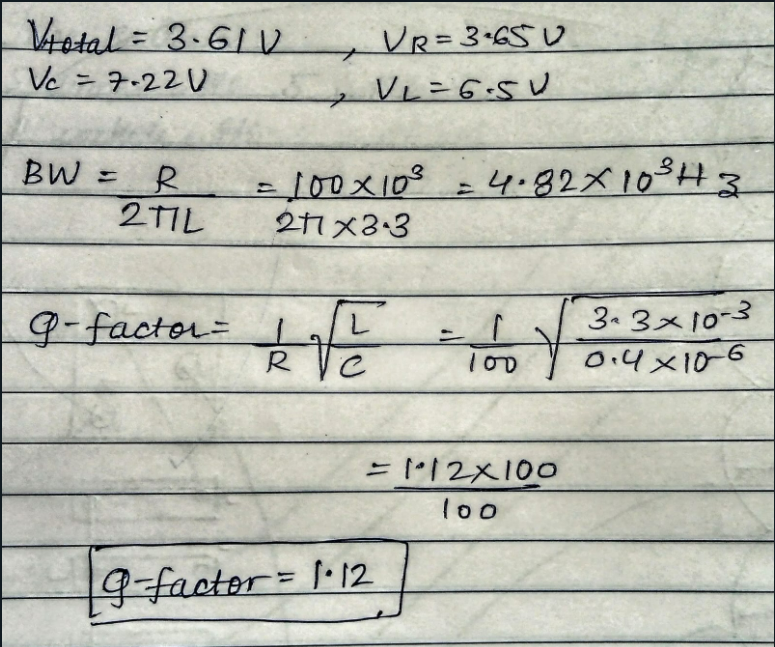 Vtotal = 3.61 V , VR = 3.65 V
Vc = 7.22 V , VL = 6.5 V
BW = R/2πL = 100×10³/2π×3.3 = 4.82×10³ Hz
Q-factor = 1/R √L/C = 1/100 √3.3×10-3/0.4×10-6
= 1.12×100/100
Q-factor = 1.12